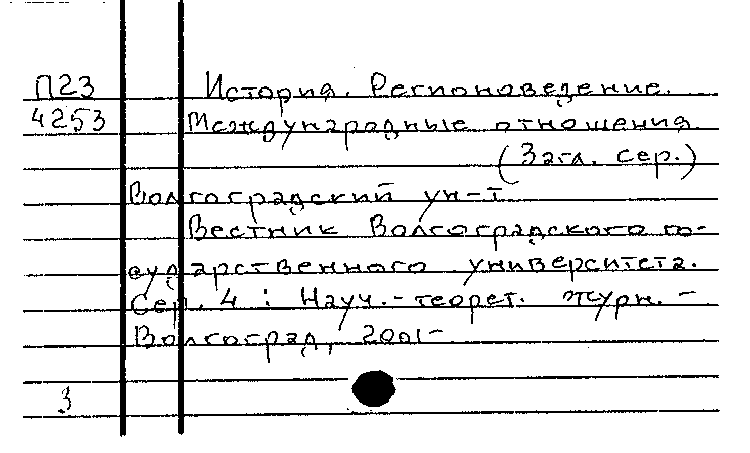 П23 История. Регионоведение.
4253 Международные отношения.
(Загл. сер.)
Волгоградский ун-т
Вестник Волгоградского го-
сударственного университета.
Сер. 4 : Науч.-теорет. журн. –
Волгоград, 2001-
3